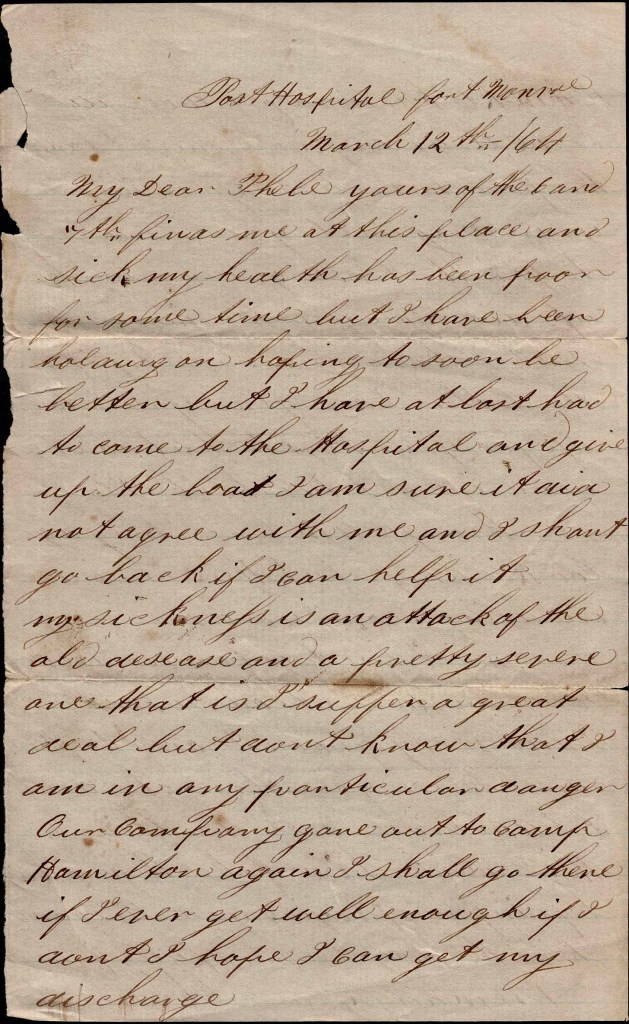 Post Hospital fort Monroe
March 12th /64
My Dear Phebe yours of the 6 and
7th finds me at this place and
sick my health has been poor
for some time but I have been
holding on hoping to soon be
better but I have at last had
to come to the Hospital and give
up the boat I am sure it did
not agree with me and I shant
go back if I can help it
my sickness is an attack of the
old desease and a pretty severe
one that is I suffer a great
deal but dont know that I
am in any particular danger
Our Company gone out to Camp
Hamilton again I shall go there
if I ever get well enough if I
dont I hope I can get my
discharge